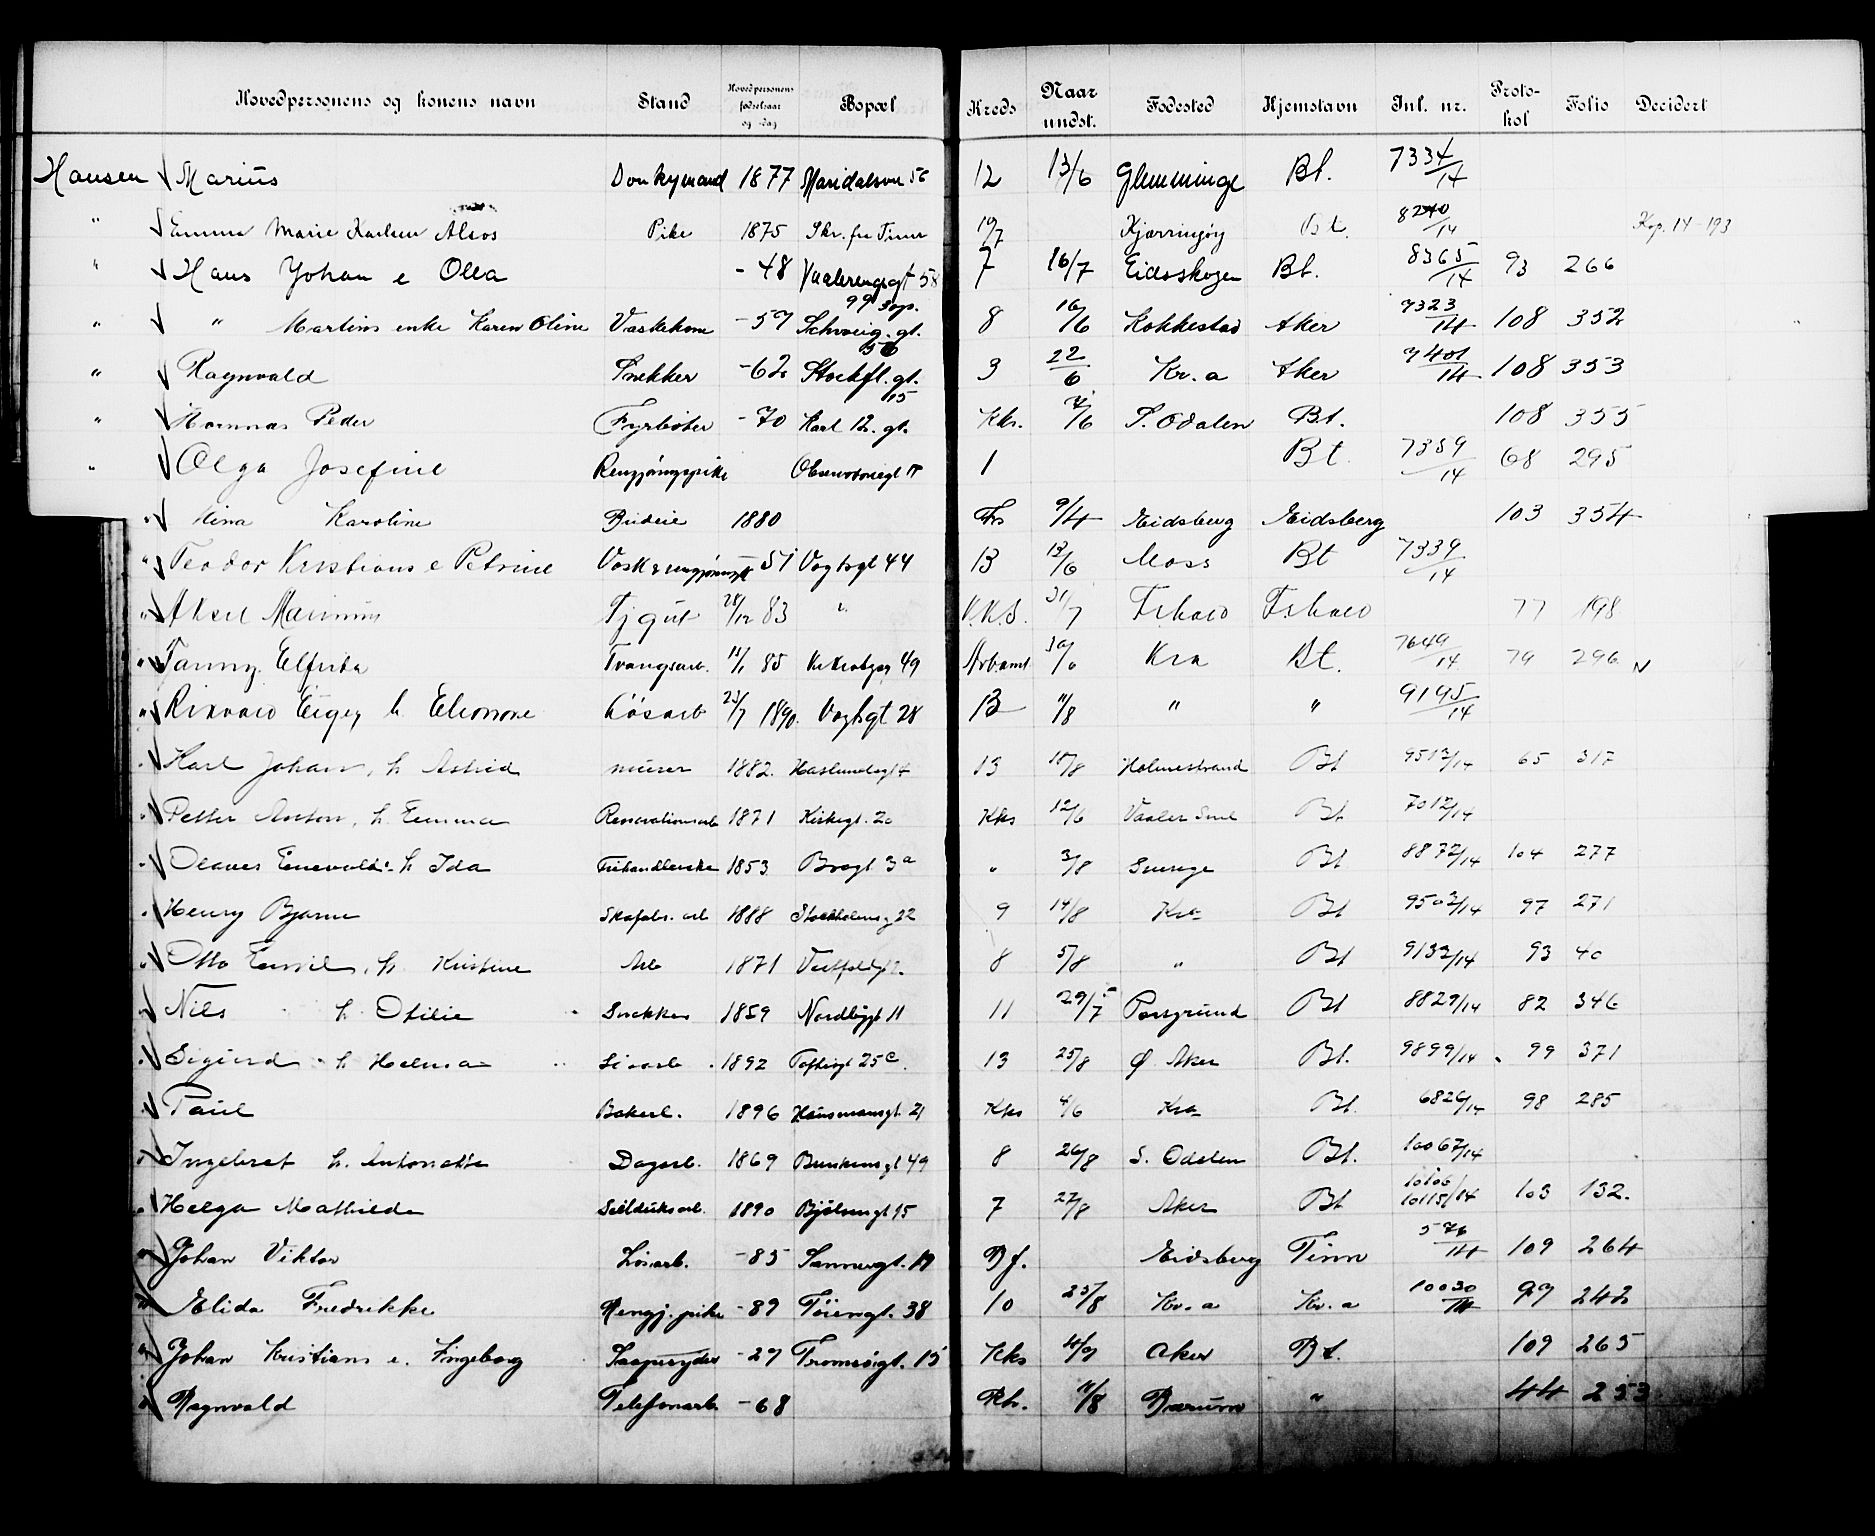 Hovedpersonens og konens navn Stand Hovedpersonens fødselsaar og -dag Bopæl Kreds Naar undst. Fødested Hjemstavn Inl. nr. Proto-kol Folio Decidert
Hansen Marius Donkymand 1877 Maridalsvn 56 12 13/6 Glemminge Bt. 7334/14
" Emma Marie Karlsen Alsos Pike 1875 Skr. fra Tinn 10/7 Kjærringøy Bt. 8240/14 Kop. 14-193
" Hans Johan e Olea -48 Vaalerengsgt 58 7 16/7 Eidsskogen Bt. 8365/14 93 266
" " Martins enke Karen Oline Vaskekone -59 Schweig. gt. 99 3op. 8 16/6 Kokkestad Aker 7323/14 108 352
" Ragnvald Snekker -62 Stockfl. gt. 56 3 22/6 Kr.a Aker 7401/14 108 353
" Peder Fyrbøter -70 Karl 12. gt. 15 Kks. 7/6 S. Odalen Bt. 108 355
" Olga Josefine Rengjøringspike Observatoriegt 1 Bt. 7359/14 68 295
" Nina Karoline Budeie 1880 9/4 Eidsberg Eidsberg 103 354
" Teodor Kristians e Petrine Vask & rengjøring 51 Vogtsgt 44 13 13/6 Moss Bt 7339/14
" Aksel Marinius Tjgut 28/12 83 " 21/7 77 198
" Fanny Elfrida Tvangsarb. 11/1 85 49 Arb.amt 30/6 Kra Bt. 7649/14 79 296
" Rikvard Eiger h. Eleonore Løsarb 23/7 1890. Vogtsgt 28 13 11/8 " " 9195/14
" Karl Johan, h Astrid murer 1882. Haslundsgt 4 13 18/8 Holmestrand Bt 9512/14 65 317
" Petter Anton, h. Emma Renovationsarb 1871 Kirkegt. 20 Kks 12/6 Vaaler Sml Bt 7012/14
" Olaves Enevold: h Ida Fiskehandlerske 1853 Brogt 3a " 3/8 Sverige Bt 8872/14 104 277
" Henry Bjarne Skofabr. arb 1888 Stockholmsg 22 9 14/8 Kra Bt 9502/14 97 271
" Otto Emil, h. Kristine Arb 1871 Vestfoldgt 2. 8 5/8 " Bt 9132/14 93 40
" Nils h. Otilie Snekker 1859 Nordbygt 11 11 29/7 Porsgrund Bt 8829/14 82 346
" Sigurd h Helma Løsarb. 1892 Toftesgt 25c. 13 25/8 Ø Aker Bt. 9899/14 99 371
" Paul Bakerl. 1896 Hausmansgt. 21 Kks 4/6 Kra Bt. 6826/14 98 285
" Ingebret h. Antonette Dagarb. 1869 Brinkensgt 49 8 26/8 S. Odalen Bt. 10067/14
" Helga Mathilde Seilduksarb. 1890 Bjølsengt 15 7 27/8 Aker Bt 10106/ 10115/14 103 132.
" Johan Viktor Løsarb. -85 Sannergt. 19 Bf. Eidsberg Tinn 576/14 109 264
" Elida Fredrikke Rengj. pike -89 Tøiengt. 38 10 25/8 Kr.a Kr.a 10030/14 99 242
" Johan Kristians e. Ingeborg -29 Tromsøgt. 15 Kks 4/9 Aker Bt. 109 265
" Ragnvald Telefonarb -68 11/8 Bærum " 44 253